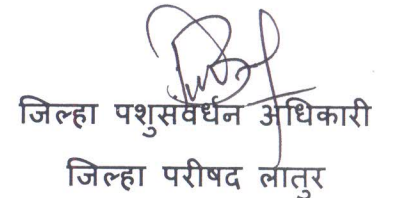 जिल्हा पशुसवर्धन अधिकारी
जिल्हा परीषद लातुर